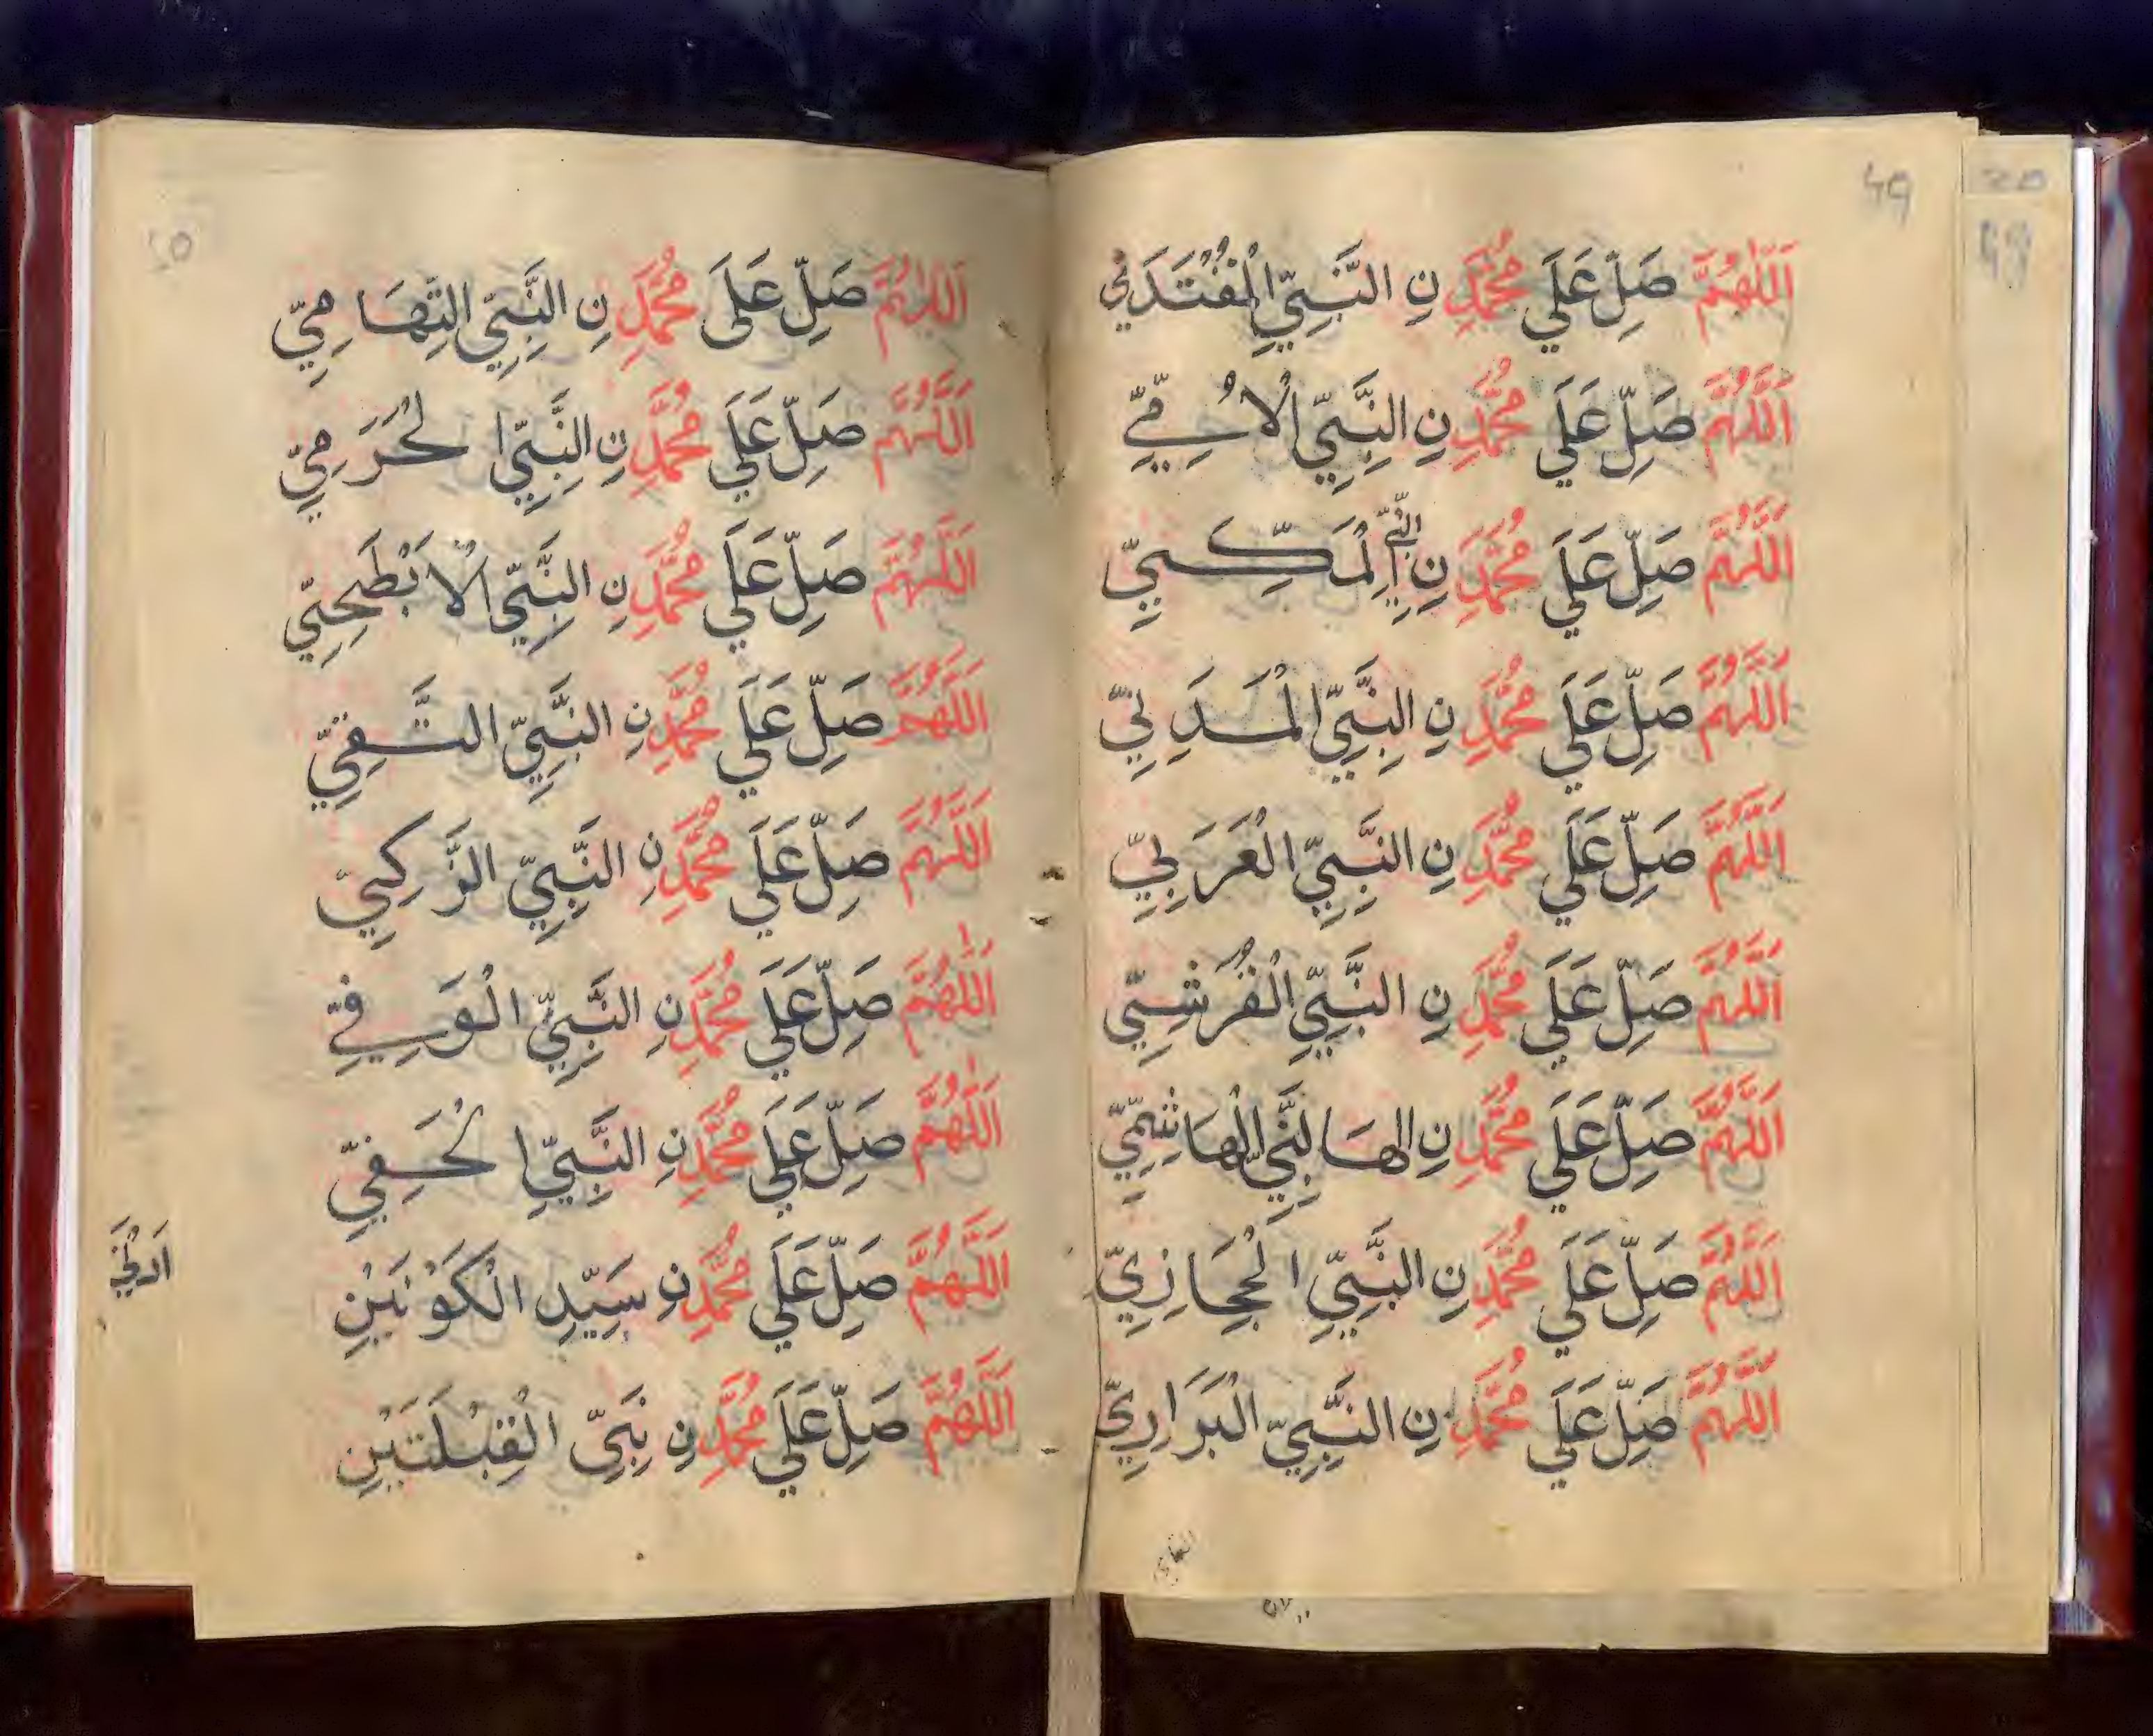 49
اَللّٰهُمَّ صَلِّ عَلَي مُحَمَّدِ نِ النَّبِيِّ الْمُقْتَدَي
اَللّٰهُمَّ صَلِّ عَلَي مُحَمَّدِ نِ النَّبِيِّ الْاُمِّيِّ
اَللّٰهُمَّ صَلِّ عَلَي مُحَمَّدِ نِ النَّبِيِّ الْمَكِّيِّ
اَللّٰهُمَّ صَلِّ عَلَي مُحَمَّدِ نِ النَّبِيِّ الْمَدَنِيِّ
اَللّٰهُمَّ صَلِّ عَلَي مُحَمَّدِ نِ النَّبِيِّ الْعَرَبِيِّ
اَللّٰهُمَّ صَلِّ عَلَي مُحَمَّدِ نِ النَّبِيِّ الْقُرَشِيِّ
اَللّٰهُمَّ صَلِّ عَلَي مُحَمَّدِ نِ الهَا لنَّبِيِّ الْهَاشِمِيِّ
اَللّٰهُمَّ صَلِّ عَلَي مُحَمَّدِ نِ النَّبِيِّ الْحِجَازِيِّ
اَللّٰهُمَّ صَلِّ عَلَي مُحَمَّدِ نِ النَّبِيِّ الْبَرَارِيِّ
50
اَللّٰهُمَّ صَلِّ عَلَى مُحَمَّدِ نِ النَّبِيِّ التِّهَامِيِّ
اَللّٰهُمَّ صَلِّ عَلَي مُحَمَّدِ نِ النَّبِيِّ الْحَرَمِيِّ
اَللّٰهُمَّ صَلِّ عَلَي مُحَمَّدِ نِ النَّبِيِّ الْاَبْطَحِيِّ
اَللّٰهُمَّ صَلِّ عَلَي مُحَمَّدِ نِ النَّبِيِّ التَّقِيِّ
اَللّٰهُمَّ صَلِّ عَلَي مُحَمَّدِ نِ النَّبِيِّ الزَّكِيِّ
اَللّٰهُمَّ صَلِّ عَلَي مُحَمَّدِ نِ النَّبِيِّ الْوَفِيِّ
اَللّٰهُمَّ صَلِّ عَلَي مُحَمَّدِ نِ النَّبِيِّ الْحَفِيِّ
اَللّٰهُمَّ صَلِّ عَلَي مُحَمَّدِ نِ سَيِّدِ الْكَوْنَيْنِ
اَللّٰهُمَّ صَلِّ عَلَي مُحَمَّدِ نِ نَبِيِّ الْقِبْلَتَيْنِ